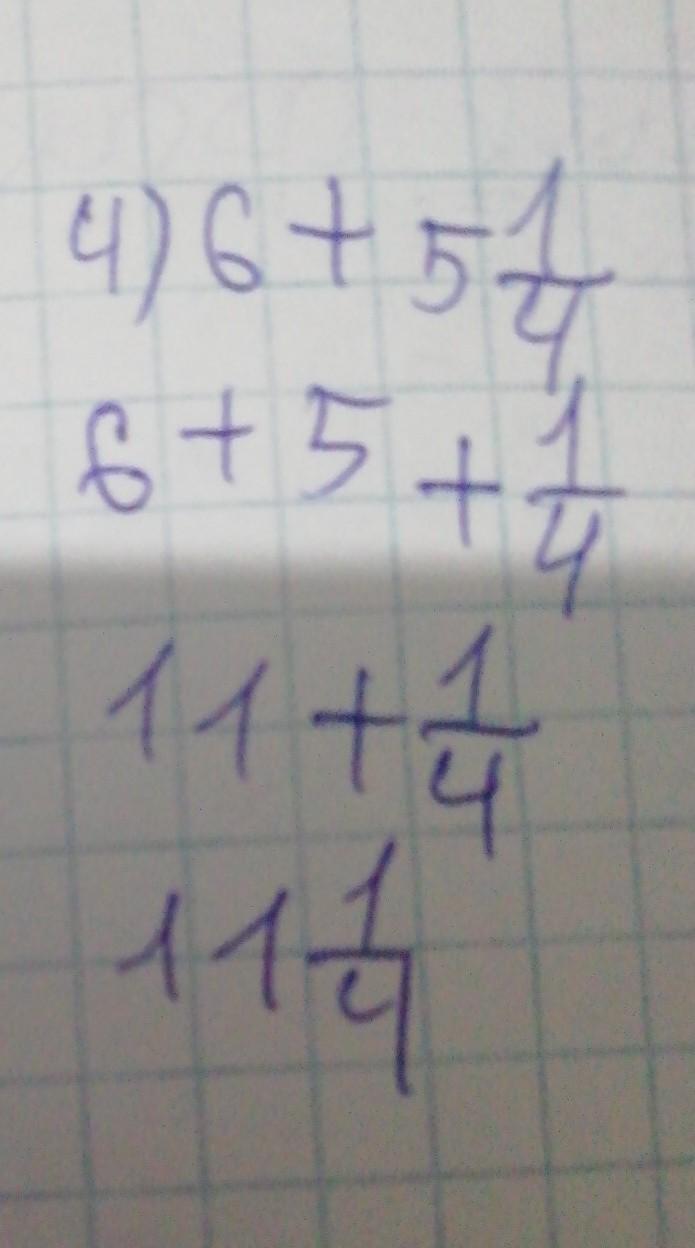 4) 6 + 5 1/4
6 + 5 + 1/4
11 + 1/4
11 1/4